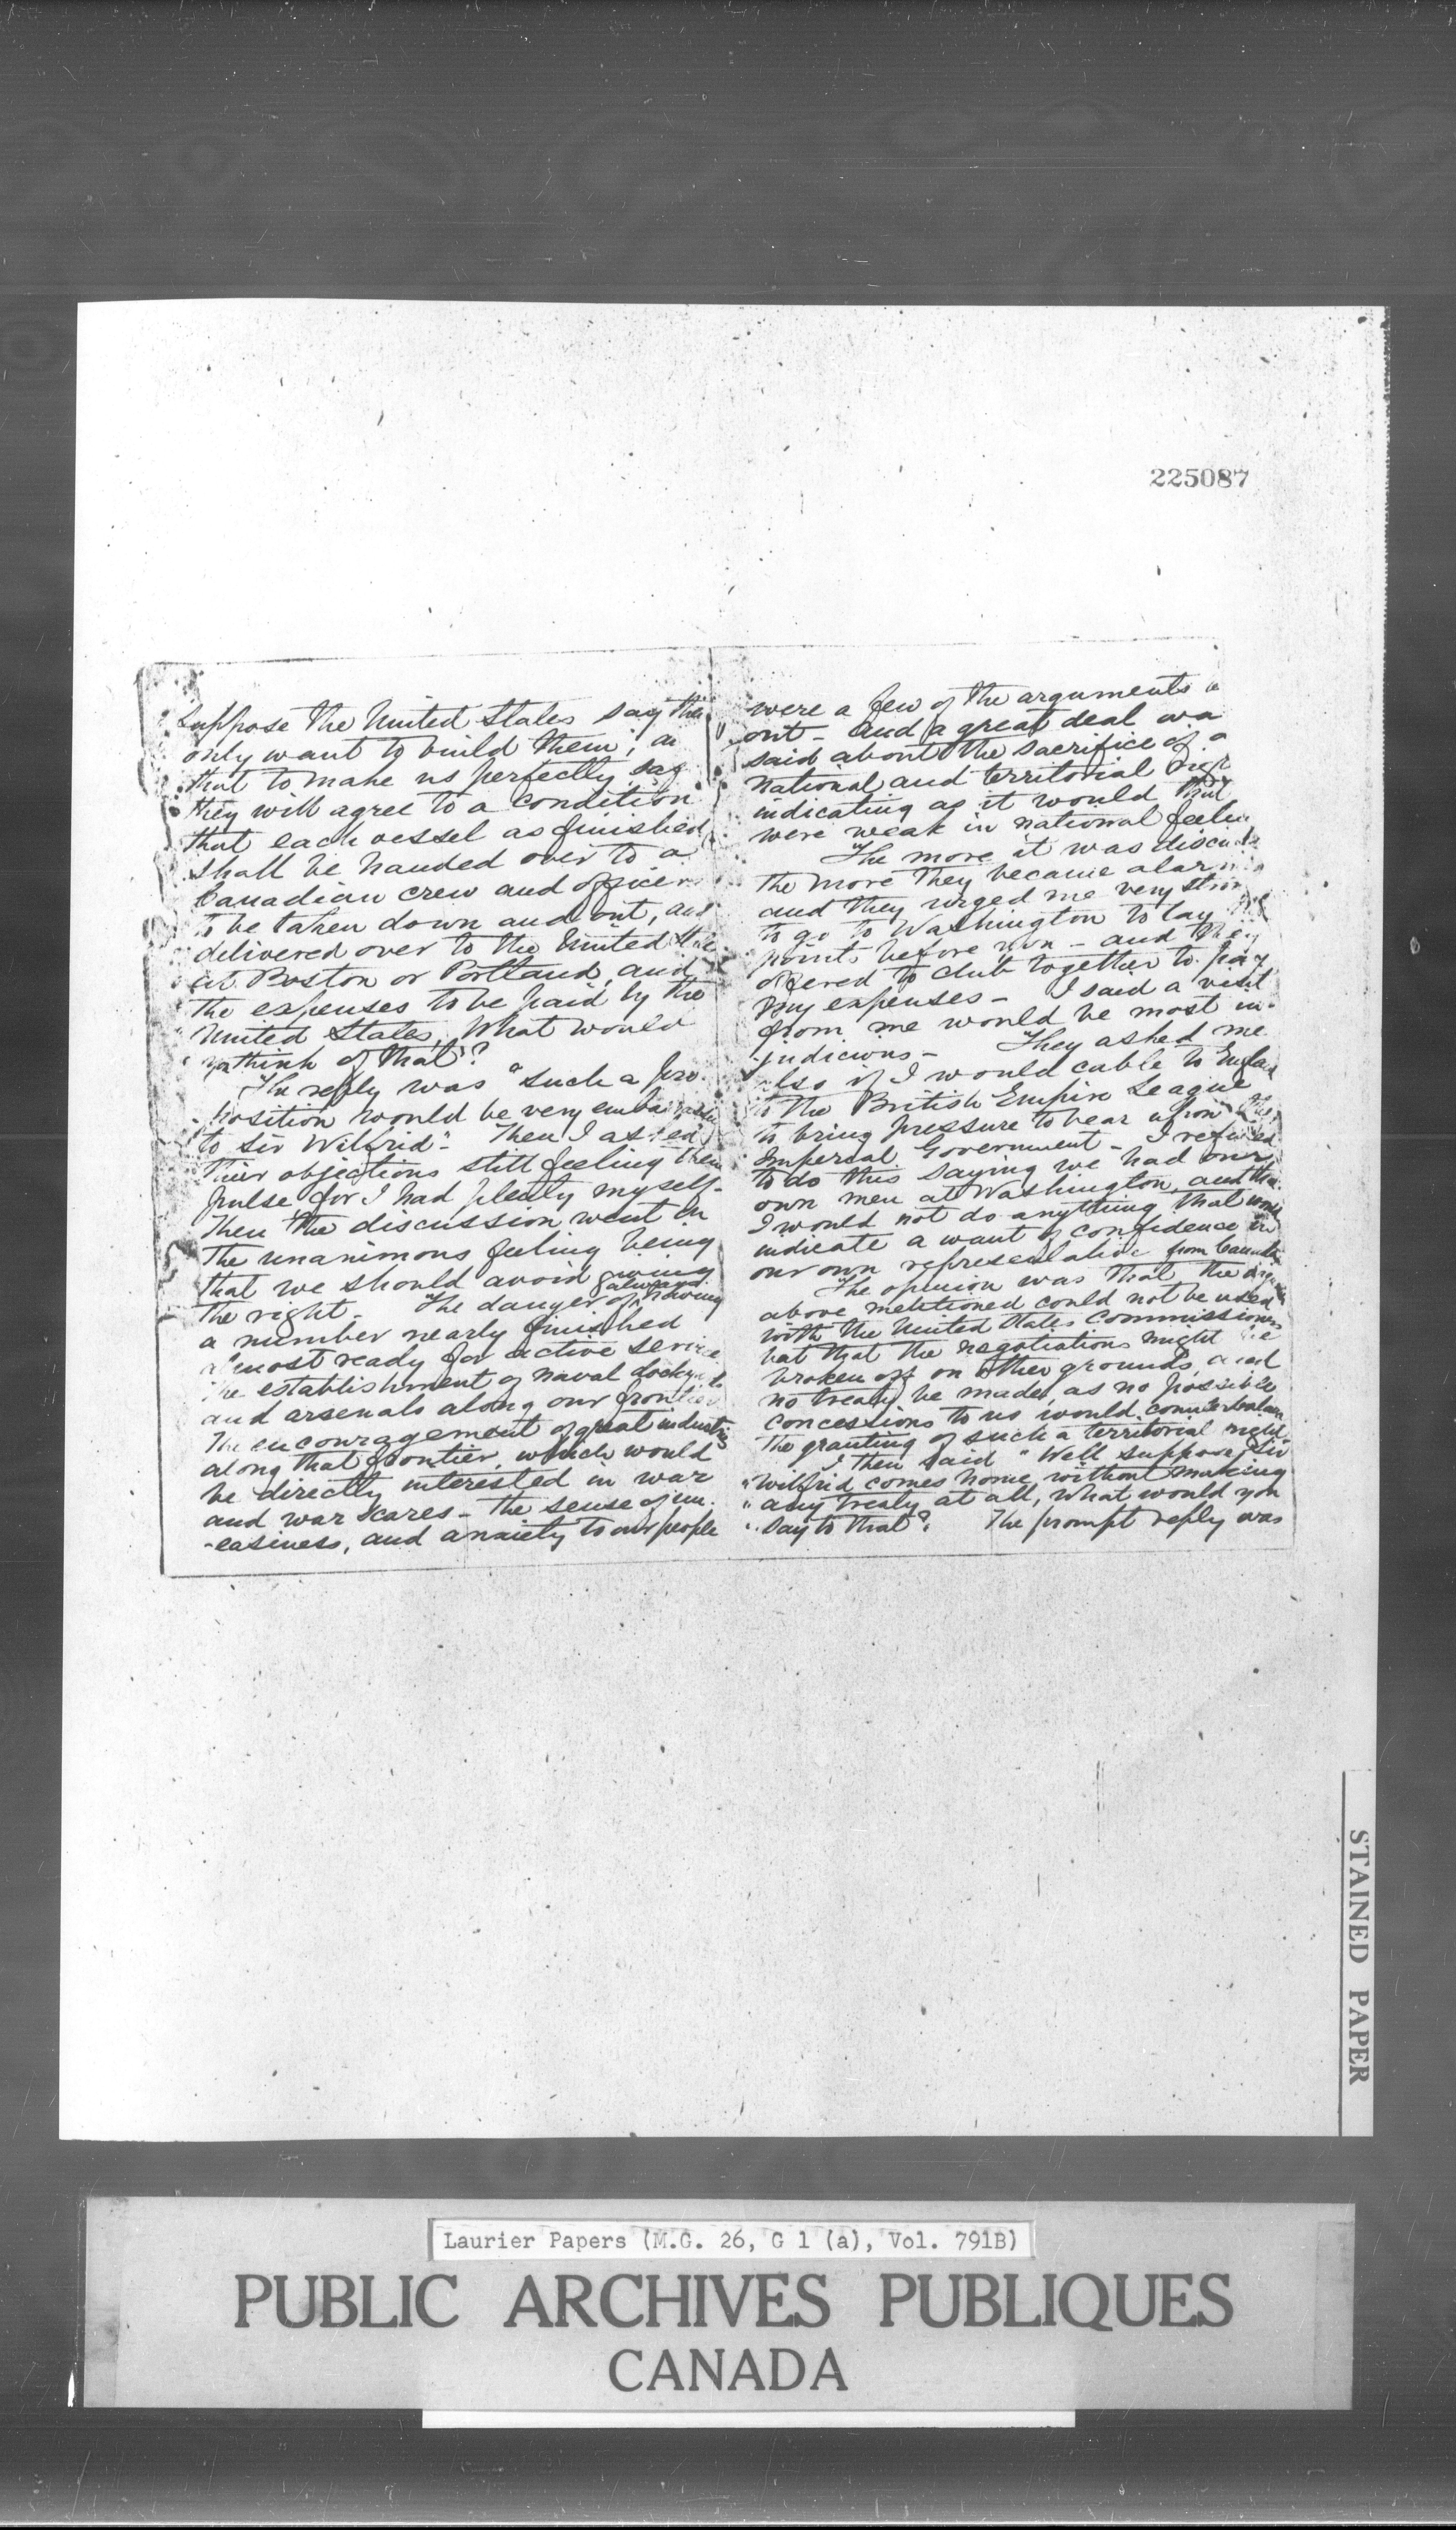 225087
Suppose the United States say they
only want to build them", an
that to make us perfectly saf
they will agree to a condition
that each vessel as finished
shall be handed over to a
Canadian crew and officers
to be taken down and out, and
delivered over to the United States
at Boston or Portland, and
the expenses to be paid by the
United States, What would
you think of that"?
The reply was "Such a pro-
position would be very embarrassing
to Sir Wilfrid". Then I asked
their objections still feeling their
pulse, for I had plenty myself-
Then the discussion went on
The unanimous feeling being
that we should avoid giving
the right - "The danger of always having
a number nearly finished
almost ready for active service
The establishment of naval dockyards
and arsenals along our frontier
The encouragement of great industries
along that frontier, which would
be directly interested in war
and war scares - The sense of un-
-easiness, and anxiety to our people
were a few of the arguments
out - and a great deal wa
said about the sacrifice of a
national and territorial righ
indicating as it would that
were weak in national feelin
The more it was discuss
the more they became alarm
and they urged me very stron
to go to Washington to lay
points before you - and they
offered to club together to pay
my expenses - I said a visit
from me would be most in-
judicious - They asked me
also if I would cable to England
to the British Empire League
to bring pressure to bear upon the
Imperial Government - I refused
to do this saying we had our
own men at Washington, and that
I would not do anything that would
indicate a want of confidence in
our own representative from Canada
The opinion was that the
above mentioned could not be used
with the United States Commissioners
but that the negotiations might be
broken off on other grounds, and
no treaty be made, as no possible
concessions to us would counterbalance
the granting of such a territorial right.
I then said "Well suppose Sir
"Wilfrid comes home, without making
"any treaty at all, what would you
"say to that"? The prompt reply was
STAINED PAPER
Laurier Papers (M.G. 26, G 1 (a), Vol. 791B)
PUBLIC ARCHIVES PUBLIQUES
CANADA